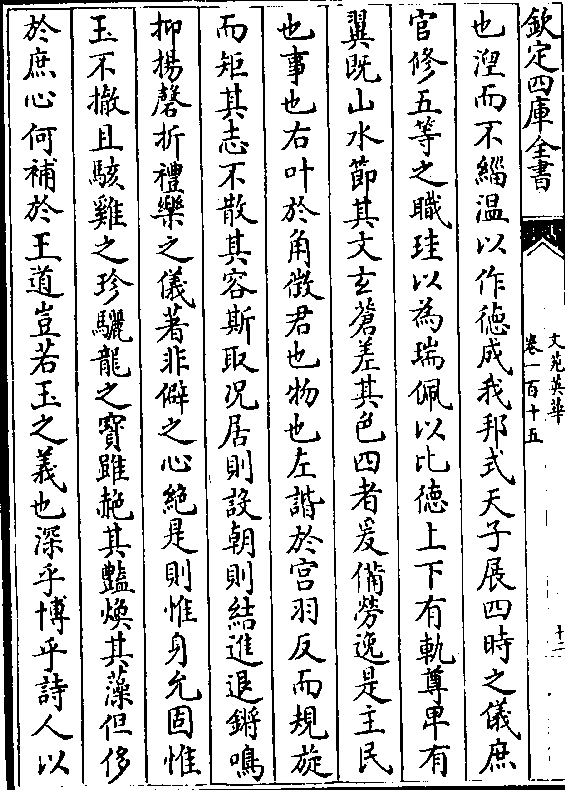 欽定四庫全書
文苑英華
卷一百十五
十二
也湼而不緇温以作徳成我邦式天子展四時之儀庶
官修五等之職珪以為瑞佩以比德上下有軌尊卑有
翼既山水節其文玄蒼差其色四者爰備勞逸是主民
也事也右叶於角徴君也物也左諧於宫羽反而規旋
而矩其志不散其容斯取况居則設朝則結進退鏘鳴
抑揚磬折禮樂之儀著非僻之心絶是則惟身允固惟
玉不撤且駭雞之珍驪龍之寳雖赩其豔煥其藻但侈
於庶心何補於王道豈若玉之義也深乎博乎詩人以